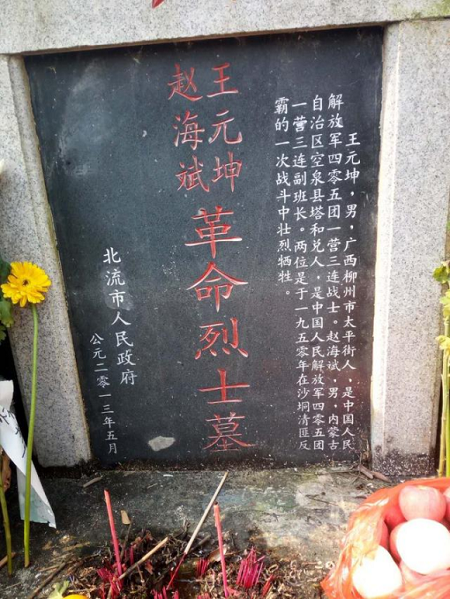 王元坤，男，广西柳州市太平街人，是中国人民
解放军四零五团一营三连战士。赵海斌，男，内蒙古
自治区空泉县塔和兑人，是中国人民解放军四零五团
一营三连副班长。两位是于一九五零年在沙垌清匪反
霸的一次战斗中壮烈牺牲。
王元坤
赵海斌
革命烈士墓
北流市人民政府
公元二零一三年五月